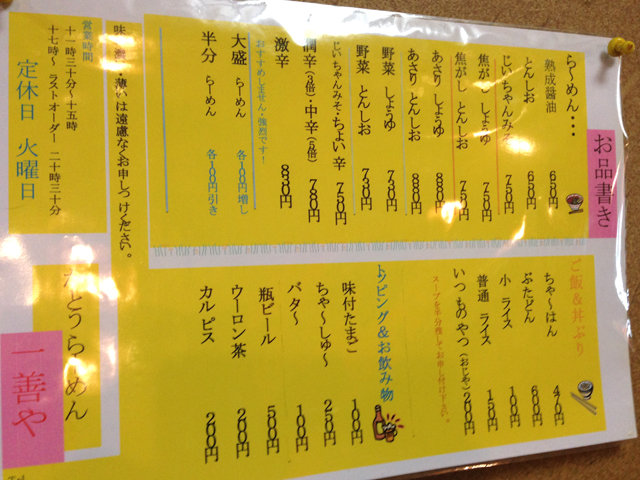 お品書き
らーめん・・・
熟成醤油 650円
とんしお 650円
じいちゃんみそ 750円
焦がし しょうゆ 750円
焦がし とんしお 750円
あさり しょうゆ 880円
あさり とんしお 880円
野菜 しょうゆ 730円
野菜 とんしお 730円
じいちゃんみそ・ちょい辛 750円
潤辛(3倍)・中辛(5倍) 780円
激辛 830円
おすすめしません・強烈です!
大盛 らーめん 各100円増し
半分 らーめん 各100円引き
味の濃い・薄いは遠慮なくお申しつけください。
営業時間
十一時三十分~十五時
十七時~ ラストオーダー 二十時三十分
定休日 火曜日
ご飯&丼ぶり
ちゃ~はん
ぶたどん 600円
小 ライス 100円
普通 ライス 150円
いつものやつ(おじや) 200円
スープを半分残してお申し付け下さい。
トッピング&お飲み物
味付たまご 100円
ちゃ~しゅ~ 250円
バタ~ 100円
瓶ビール 500円
ウーロン茶 200円
カルピス 200円
らーめん
一善や